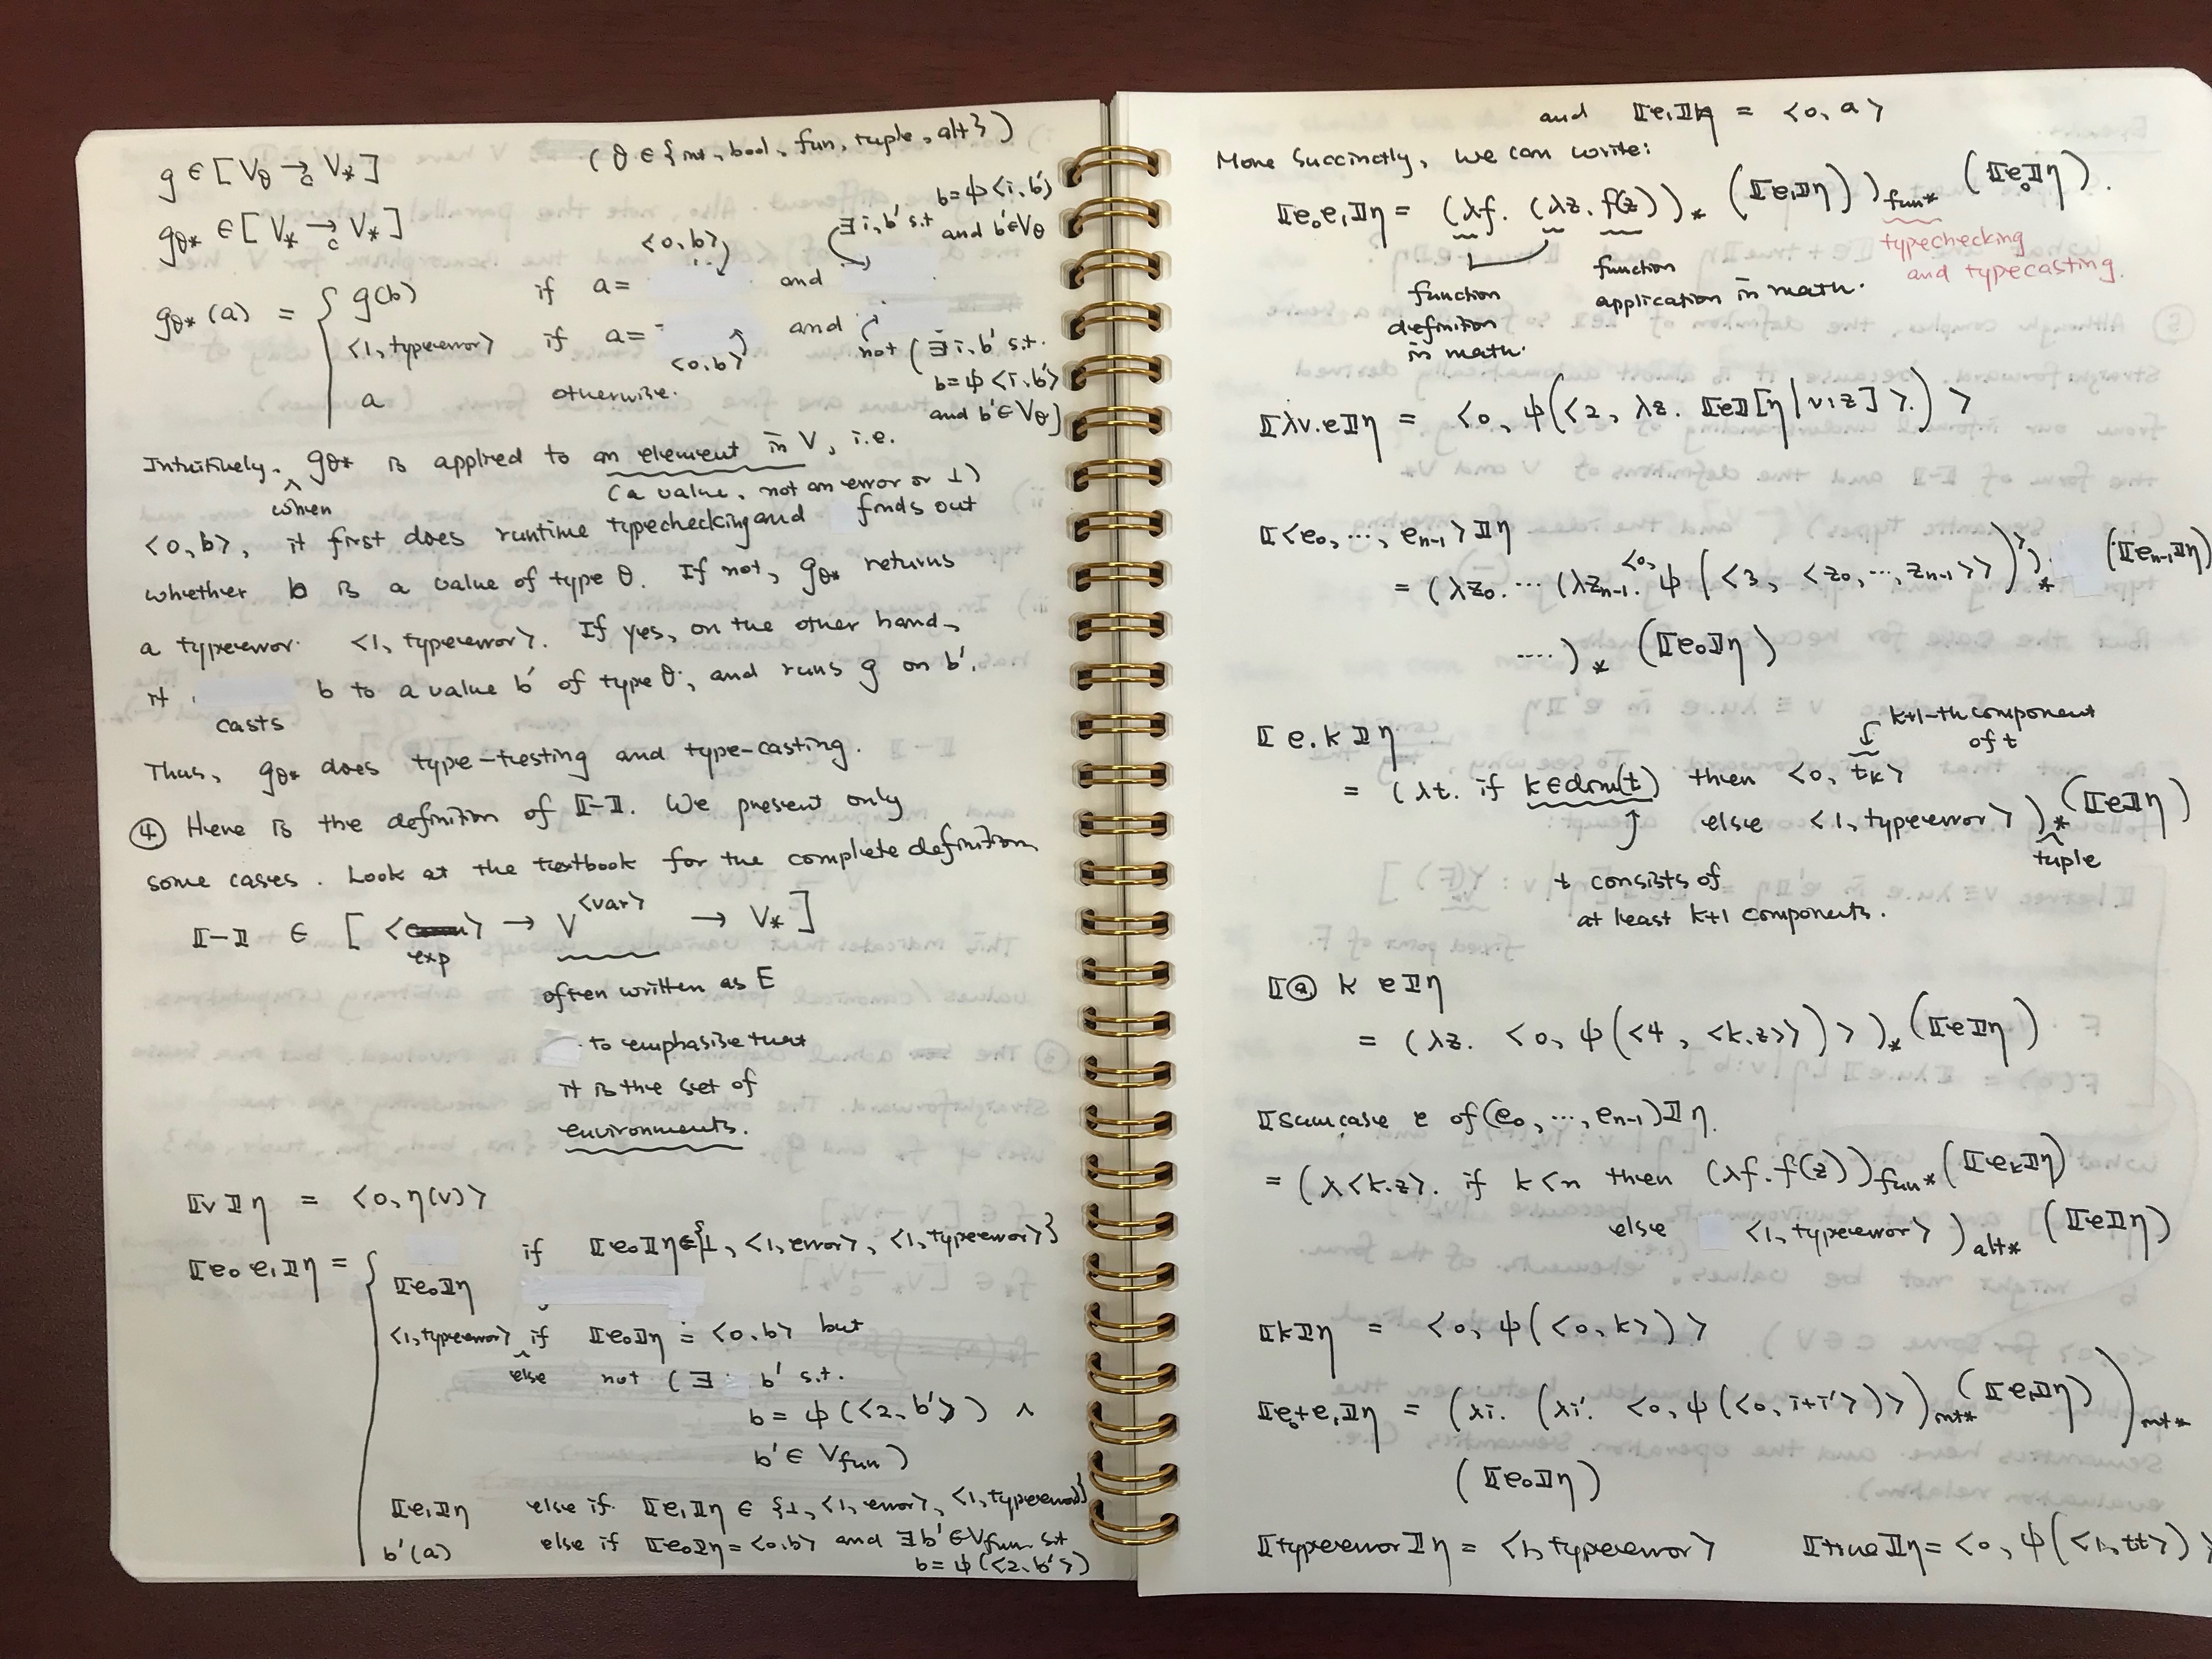 g ∈ [V_θ →_c V_*] (θ ∈ {int, bool, fun, tuple, alt})
g_θ* ∈ [V_* →_c V_*]
g_θ*(a) = { g(b) if a = <0,b> and ∃i,b' s.t b=ψ<i,b'> and b'∈V_θ
<1, typeerror> if a = <0,b> and not (∃i,b' s.t. b=ψ<i,b'> and b'∈V_θ)
a otherwise.
Intuitively, when g_θ* is applied to an element in V, i.e.
(a value, not an error or ⊥)
<0,b>, it first does runtime typechecking and finds out
whether b is a value of type θ. If not, g_θ* returns
a typeerror <1, typeerror>. If yes, on the other hand,
it casts b to a value b' of type θ, and runs g on b'.
Thus, g_θ* does type-testing and type-casting.
④ Here is the definition of ⟦-⟧. We present only
some cases. Look at the textbook for the complete definition
⟦-⟧ ∈ [<exp> → V^<var> → V_*]
often written as E
to emphasise that
it is the set of
environments.
⟦v⟧η = <0, η(v)>
⟦e₀ e₁⟧η = { ⟦e₀⟧η if ⟦e₀⟧η∈{⊥, <1, error>, <1, typeerror>}
<1, typeerror> else if ⟦e₀⟧η = <0,b> but
not (∃ b' s.t.
b = ψ(<2, b'>) ∧
b' ∈ V_fun)
⟦e₁⟧η else if ⟦e₁⟧η ∈ {⊥, <1, error>, <1, typeerror>}
b'(a) else if ⟦e₀⟧η = <0,b> and ∃b'∈V_fun s.t
b = ψ(<2, b'>)
and ⟦e₁⟧η = <0, a>
More succinctly, we can write:
⟦e₀e₁⟧η = (λf. (λz. f(z))_* (⟦e₁⟧η))_fun* (⟦e₀⟧η).
typechecking
and typecasting.
function
definition
in math.
function
application in math.
⟦λv.e⟧η = <0, ψ(<2, λz. ⟦e⟧[η|v:z]>)>
⟦<e₀, ..., e_{n-1}>⟧η
= (λz₀. ... (λz_{n-1}. <0, ψ(<3, <z₀, ..., z_{n-1}>>)>)_* (⟦e_{n-1}⟧η)
....)_* (⟦e₀⟧η)
⟦e.k⟧η
k+1-th component
of t
= (λt. if k∈dom(t) then <0, t_k>
else <1, typeerror>)_tuple* (⟦e⟧η)
t consists of
at least k+1 components.
⟦@ k e⟧η
= (λz. <0, ψ(<4, <k,z>>)>)_* (⟦e⟧η)
⟦sumcase e of (e₀, ..., e_{n-1})⟧η.
= (λ<k,z>. if k<n then (λf.f(z))_fun* (⟦e_k⟧η)
else <1, typeerror>)_alt* (⟦e⟧η)
⟦k⟧η = <0, ψ(<0, k>)>
⟦e₀+e₁⟧η = (λi. (λi'. <0, ψ(<0, i+i'>)>)_int* (⟦e₁⟧η))_int*
(⟦e₀⟧η)
⟦typeerror⟧η = <1, typeerror> ⟦true⟧η = <0, ψ(<1, tt>)>